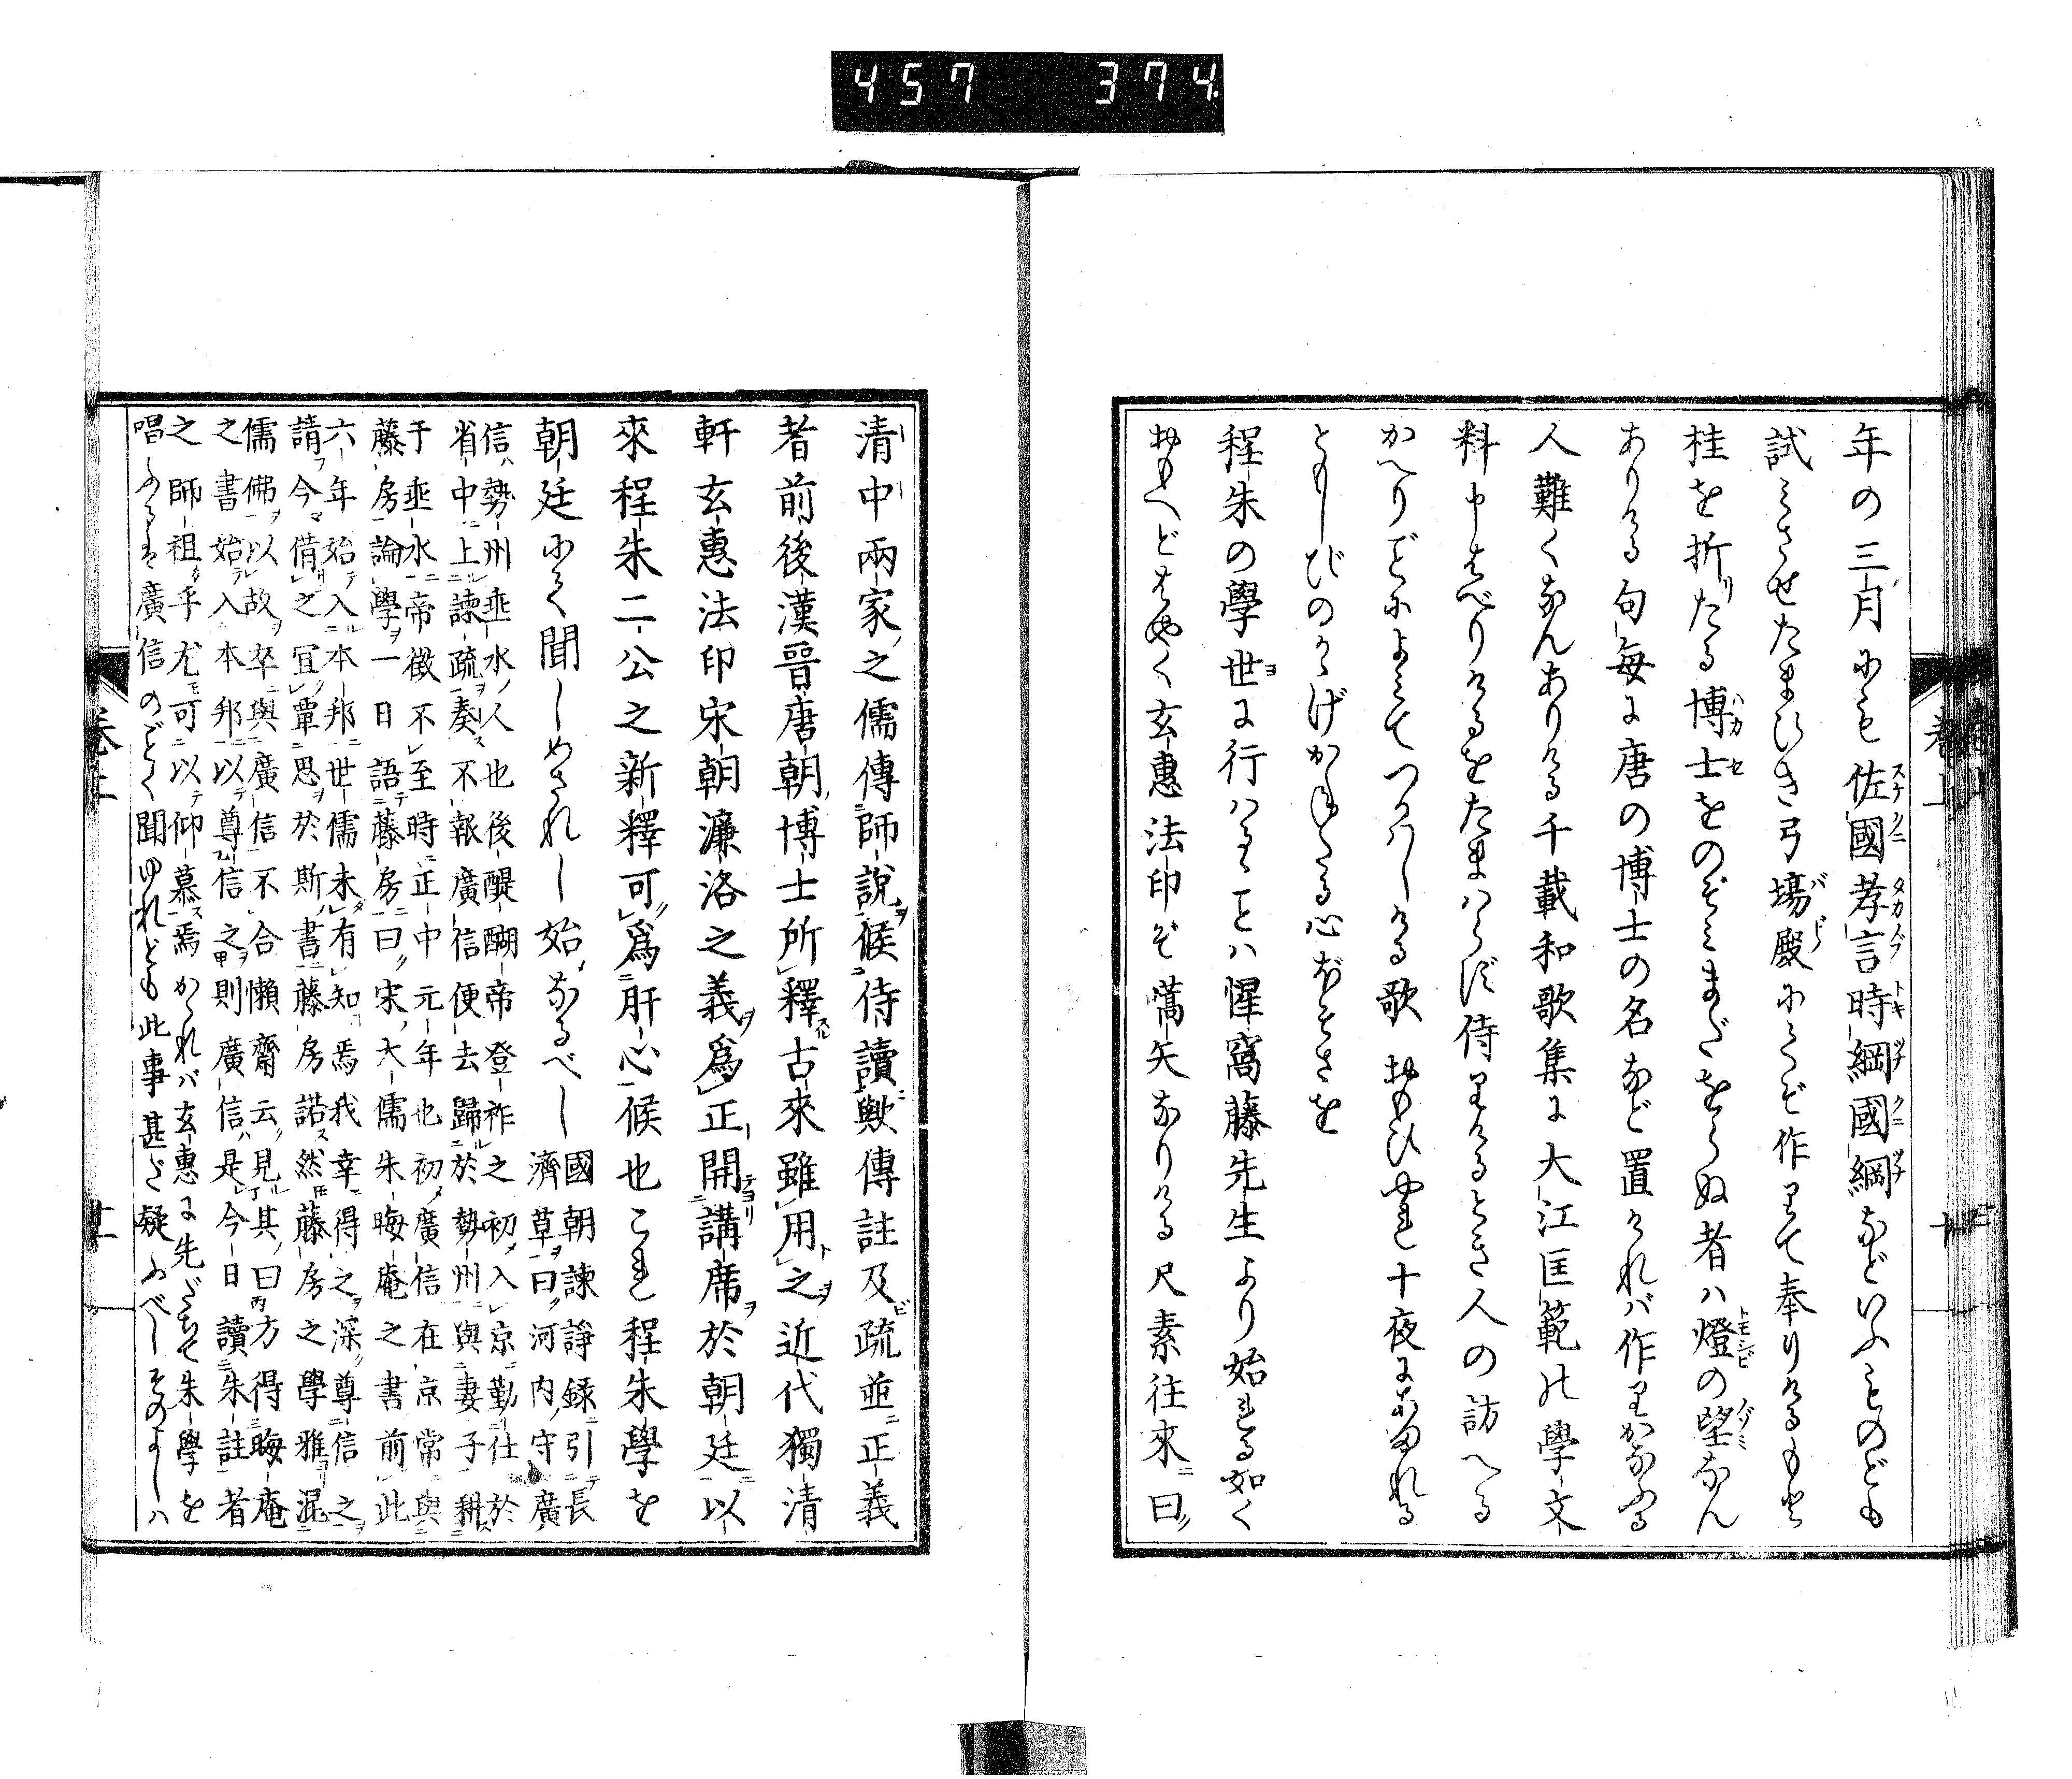 457 374
年の三月にも佐國孝言時綱國綱などいふものども
試ミさせたまひき弓塲殿にてぞ作りて奉りけるもと
桂を折たる博士をのぞミまだをらぬ者ハ燈の望なん
ありける句毎に唐の博士の名など置けれバ作りかなふる
人難くなんありける千載和歌集に大江匡範の學文
料申はべりけるをたまハらず侍りけるとき人の訪へる
かへりごとによミてつかハしける歌 おもひやれ十夜にあまれる
ともしびのかゝげかねたる心ぼそさを
程朱の學世に行ハるゝことハ惺窩藤先生より始れる如く
おもへどはやく玄惠法印ぞ嚆矢なりける尺素往來曰
清中兩家之儒傳師說候侍讀歟傳註及疏並正義
者前後漢晉唐朝博士所釋古來雖用之近代獨清
軒玄惠法印宋朝濂洛之義爲正開講席於朝廷以
來程朱二公之新釋可爲肝心候也これ程朱學を
朝廷にて聞しめされし始なるべし
國朝諫諍錄引長
濟草曰河内守廣
信勢州垂水人也後醍醐帝登祚之初入京勤仕於
省中上諫疏奏不報廣信便去歸於勢州與妻子耕
于垂水帝徵不至時正中元年也初廣信在京常與
藤房論學一日語藤房曰宋大儒朱晦庵之書前此
六年始入本邦世儒未有知焉我幸得之深尊信之
請今借之宜覃思於斯書藤房諾然藤房之學雅混
儒佛以故卒與廣信不合懶齋云見其曰方得晦庵
之書始入本邦以尊信之則廣信是今日讀朱註者
之師祖乎尤可以仰慕焉かゝれバ玄惠に先だちて朱學を
唱ふるは廣信のごとく聞ゆれども此事甚だ疑ふべしそのよしハ
卷上
十一